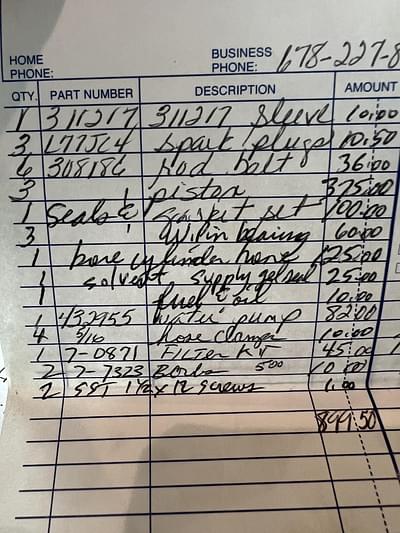 HOME PHONE:
BUSINESS PHONE: 678-227-8
QTY. PART NUMBER DESCRIPTION AMOUNT
1 311217 311217 Sleeve 10.00
3 L77JC4 spark plugs 10.50
6 308186 Rod bolt 36.00
3 piston 375.00
1 Seals & Gasket set 100.00
3 W.Pin bearing 60.00
1 bore cylinder hone 125.00
1 solvent supply gel seal 25.00
1 fuel & oil 10.00
1 432955 water pump 82.00
4 5/16 hose clamps 10.00
1 7-0871 FILTER KIT 45.00
2 7-7323 5.00 10.00
2 SST 1 1/2 x 12 screws 1.00
899.50